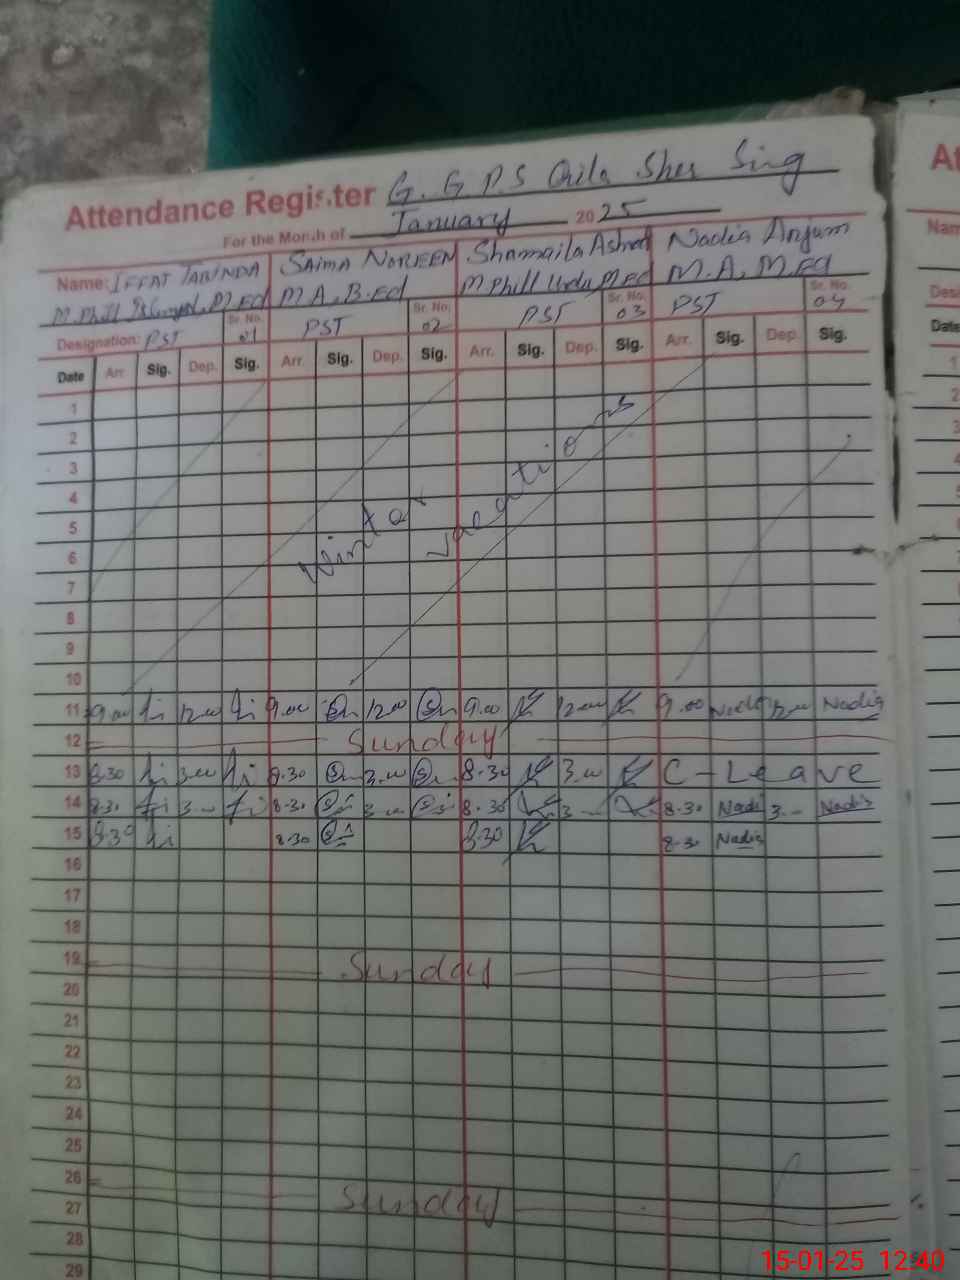 Attendance Register G. G P.S Qila Sher Sing
For the Month of January 2025
Name: IFFAT TABINDA SAIMA NOREEN Shamaila Ashraf Nadia Anjum
M.Phill M.Ed M A, B.Ed M Phill Urdu M.Ed M.A, M.Ed
Designation: PST Sr. No. 01 PST Sr. No. 02 PST Sr. No. 03 PST Sr. No. 04
Date Arr. Sig. Dep. Sig. Arr. Sig. Dep. Sig. Arr. Sig. Dep. Sig. Arr. Sig. Dep. Sig.
1
2
3
4
5
6
7
8
9
10
Winter vacations
11 9.00 12.00 9.00 12.00 9.00 12.00 9.00 Nadia 12.00 Nadia
12 Sunday
13 8.30 3.00 8.30 3.00 8.30 3.00 C-Leave
14 8.30 3.00 8.30 3.00 8.30 3.00 8.30 Nadia 3.00 Nadia
15 8.30 8.30 8.30 8.30 Nadia
16
17
18
19 Sunday
20
21
22
23
24
25
26 Sunday
27
28
29
At
Nam
Desi
Date
1
2
3
15-01-25 12:40